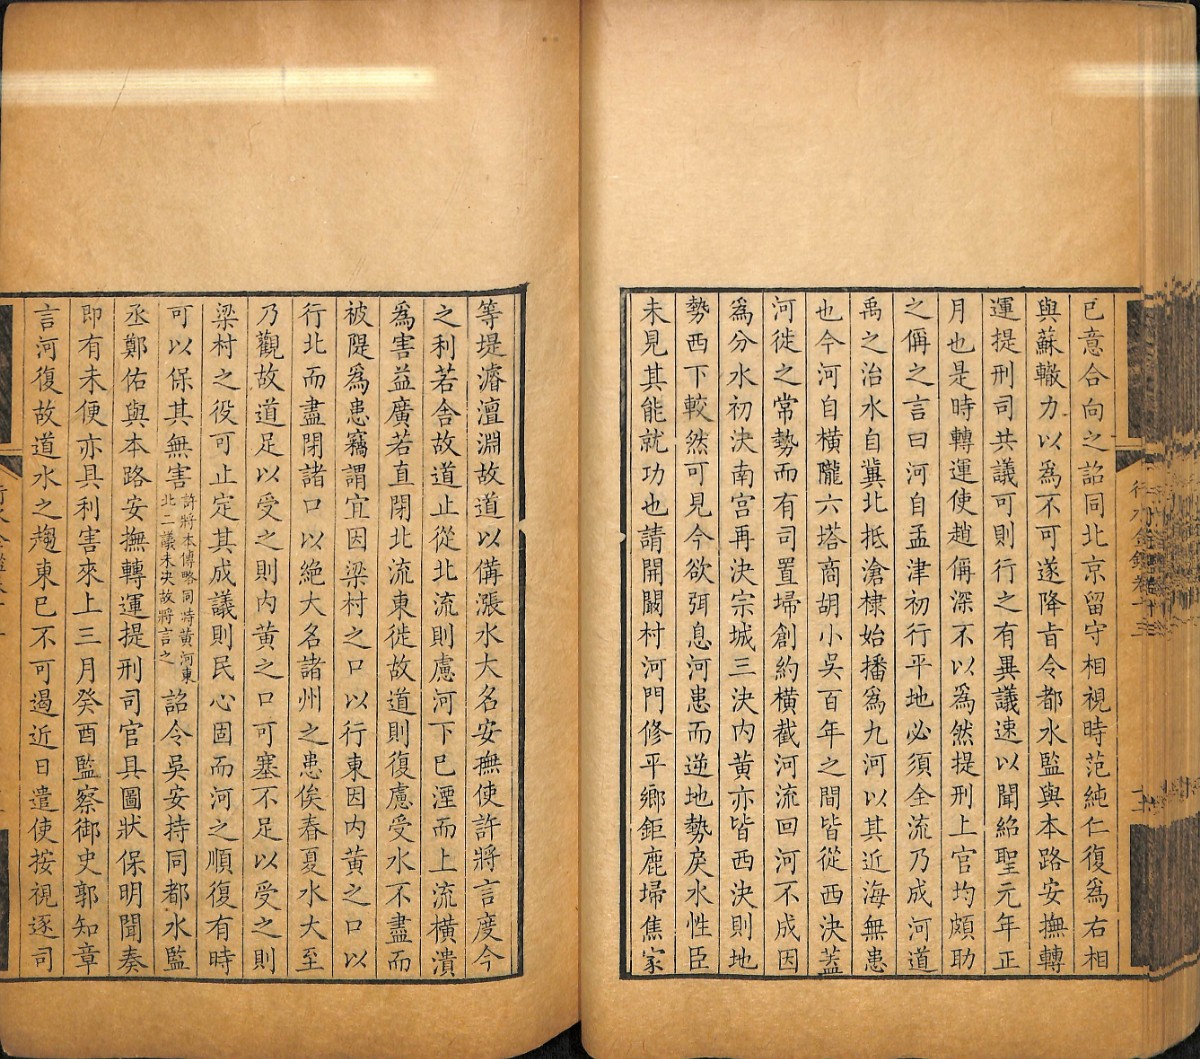 已意合向之詔同北京留守相視時范純仁復爲右相
與蘇轍力以爲不可遂降旨令都水監與本路安撫轉
運提刑司共議可則行之有異議速以聞紹聖元年正
月也是時轉運使趙偁深不以爲然提刑上官均頗助
之偁之言曰河自孟津初行平地必須全流乃成河道
禹之治水自冀北抵滄棣始播爲九河以其近海無患
也今河自橫隴六塔商胡小吳百年之間皆從西決蓋
河徙之常勢而有司置埽創約橫截河流回河不成因
爲分水初決南宮再決宗城三決內黃亦皆西決則地
勢西下較然可見今欲弭息河患而逆地勢戾水性臣
未見其能就功也請開闞村河門修平鄉鉅鹿埽焦家
等堤濬澶淵故道以備漲水大名安撫使許將言度今
之利若舍故道止從北流則慮河下已湮而上流橫潰
爲害益廣若直閉北流東徙故道則復慮受水不盡而
被隄爲患竊謂宜因梁村之口以行東因內黃之口以
行北而盡閉諸口以絶大名諸州之患俟春夏水大至
乃觀故道足以受之則內黃之口可塞不足以受之則
梁村之役可止定其成議則民心固而河之順復有時
可以保其無害許將本傳略同時黃河東北二議未決故將言之詔令吳安持同都水監
丞鄭佑與本路安撫轉運提刑司官具圖狀保明聞奏
即有未便亦具利害來上三月癸酉監察御史郭知章
言河復故道水之趨東已不可遏近日遣使按視逐司